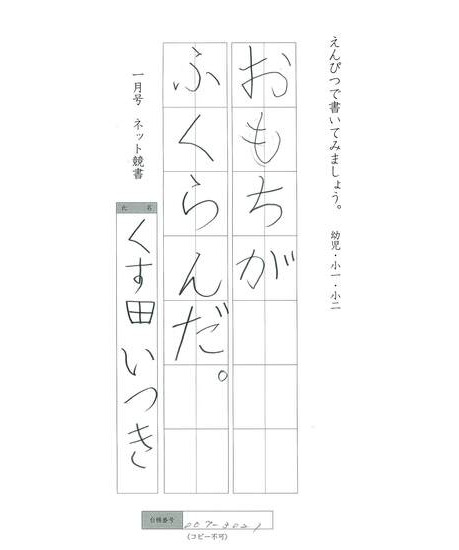 えんぴつで書いてみましょう。 幼児・小一・小二
おもちが
ふくらんだ。
一月号 ネット競書
氏名
くす田いつき
台帳番号
(コピー不可)